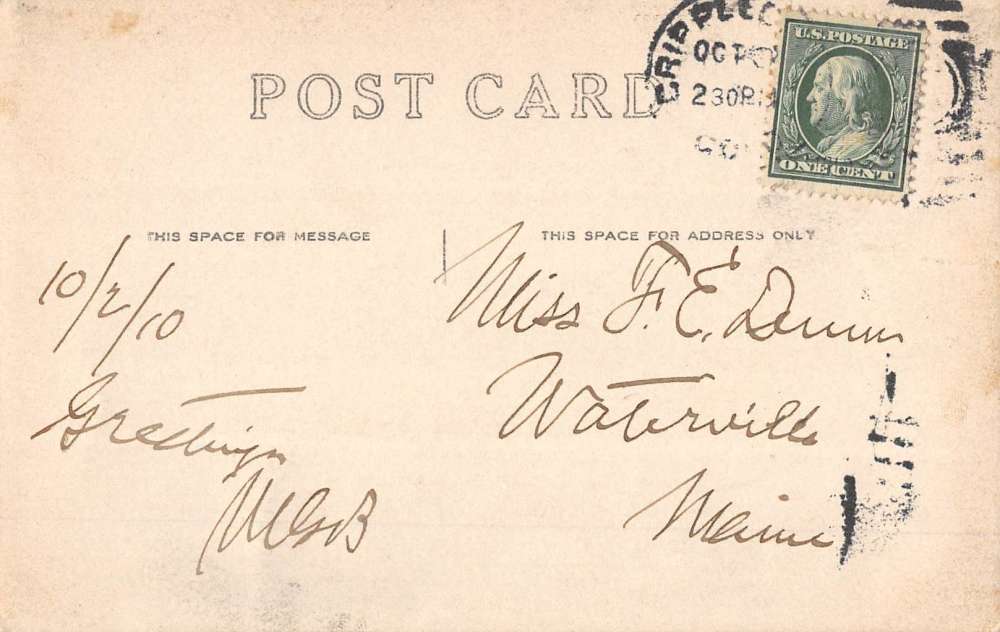 POST CARD
CRIPPLE C
OCT
230P.M
COL
U.S. POSTAGE
ONE CENT
THIS SPACE FOR MESSAGE
THIS SPACE FOR ADDRESS ONLY
10/2/10
Greetings
Miss F. E.
Waterville
Maine